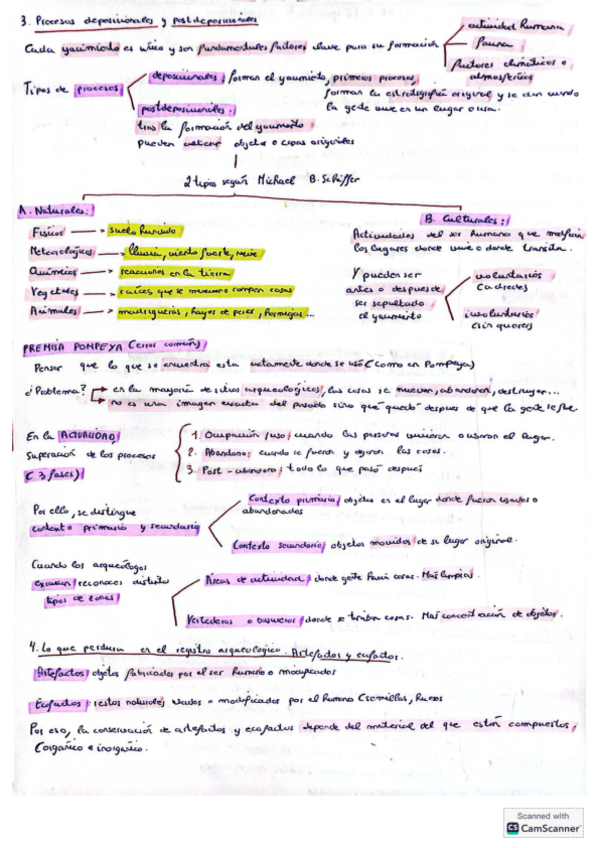 3. Procesos deposicionales y postdeposicionales
Cada yacimiento es único y son fundamentales factores clave para su formación
actividad humana
fauna
factores climáticos o
atmosféricos
Tipos de procesos
deposicionales: forman el yacimiento, primeros procesos,
forman la estratigrafía original y se dan cuando
la gente vive en un lugar o usa.
postdeposicionales:
tras la formación del yacimiento
pueden alterar objetos o capas originales
2 tipos según Michael B. Schiffer
A. Naturales:
Físicos → suelo hundido
Meteorológicos → lluvia, viento fuerte, nieve
Químicos → reacciones en la tierra
Vegetales → raíces que se mueven o rompen cosas
Animales → madrigueras, hoyos de perro, hormigas...
B. Culturales:
Actividades del ser humano que modifican
los lugares donde vive o donde transita.
Y pueden ser
antes o después de
ser sepultado
el yacimiento
voluntarios
involuntarios
(sin querer)
PREMISA POMPEYA (error común)
Pensar que lo que se encuentra está exactamente donde se usó (como en Pompeya)
¿Problema? → en la mayoría de sitios arqueológicos, las cosas se mueven, abandonan, destruyen...
→ no es una imagen exacta del pasado sino que quedó después de que la gente se fue
En la ACTUALIDAD
superación de los procesos
(3 fases)
1. Ocupación/uso: cuando las personas vivieron o usaron el lugar.
2. Abandono: cuando se fueron y dejaron las cosas.
3. Post-abandono: todo lo que pasó después
Por ello, se distingue
contexto primario y secundario
Contexto primario: objetos en el lugar donde fueron usados o
abandonados
Contexto secundario: objetos movidos de su lugar original.
Cuando los arqueólogos
excavan reconocen distintos
tipos de zonas
Áreas de actividad: donde gente hacía cosas. Más limpias
Vertederos o basureros: donde se tiraban cosas. Más concentración de objetos.
4. Lo que perdura en el registro arqueológico. Artefactos y ecofactos.
Artefactos: objetos fabricados por el ser humano o modificados
Ecofactos: restos naturales usados o modificados por el humano (semillas, huesos
Por eso, la conservación de artefactos y ecofactos depende del material del que están compuestos,
(orgánico e inorgánico.
Scanned with
CS CamScanner